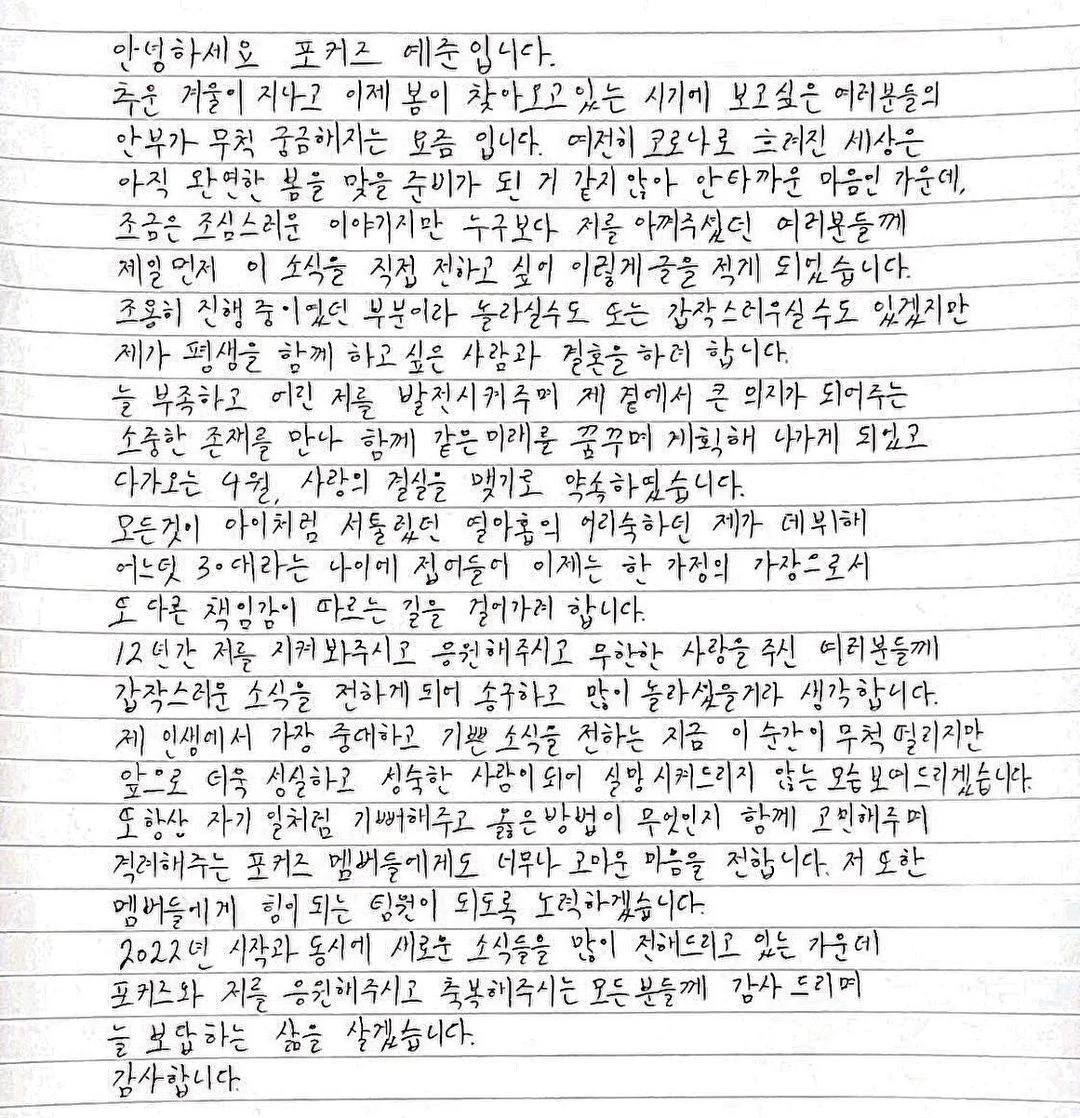 안녕하세요 포커즈 예준입니다.
추운 겨울이 지나고 이제 봄이 찾아오고 있는 시기에 보고싶은 여러분들의
안부가 무척 궁금해지는 요즘 입니다. 여전히 코로나로 흐려진 세상은
아직 완연한 봄을 맞을 준비가 된 거 같지 않아 안타까운 마음인 가운데,
조금은 조심스러운 이야기지만 누구보다 저를 아껴주셨던 여러분들께
제일 먼저 이 소식을 직접 전하고 싶어 이렇게 글을 적게 되었습니다.
조용히 진행 중이였던 부분이라 놀라실수도 또는 갑작스러우실 수도 있겠지만
제가 평생을 함께 하고 싶은 사람과 결혼을 하려 합니다.
늘 부족하고 어린 저를 발전시켜주며 제 곁에서 큰 의지가 되어주는
소중한 존재를 만나 함께 같은 미래를 꿈꾸며 계획해 나가게 되었고
다가오는 4월, 사랑의 결실을 맺기로 약속하였습니다.
모든것이 아이처럼 서툴렀던 열아홉의 어리숙하던 제가 데뷔해
어느덧 30대라는 나이에 접어들어 이제는 한 가정의 가장으로서
또 다른 책임감이 따르는 길을 걸어가려 합니다.
12년간 저를 지켜봐주시고 응원해주시고 무한한 사랑을 주신 여러분들께
갑작스러운 소식을 전하게 되어 송구하고 많이 놀라셨을거라 생각합니다.
제 인생에서 가장 중대하고 기쁜 소식을 전하는 지금 이 순간이 무척 떨리지만
앞으로 더욱 성실하고 성숙한 사람이 되어 실망시켜드리지 않는 모습 보여드리겠습니다.
또 항상 자기 일처럼 기뻐해주고 옳은 방법이 무엇인지 함께 고민해주며
격려해주는 포커즈 멤버들에게도 너무나 고마운 마음을 전합니다. 저 또한
멤버들에게 힘이 되는 팀원이 되도록 노력하겠습니다.
2022년 시작과 동시에 새로운 소식들을 많이 전해드리고 있는 가운데
포커즈와 저를 응원해주시고 축복해주시는 모든분들께 감사 드리며
늘 보답하는 삶을 살겠습니다.
감사합니다.